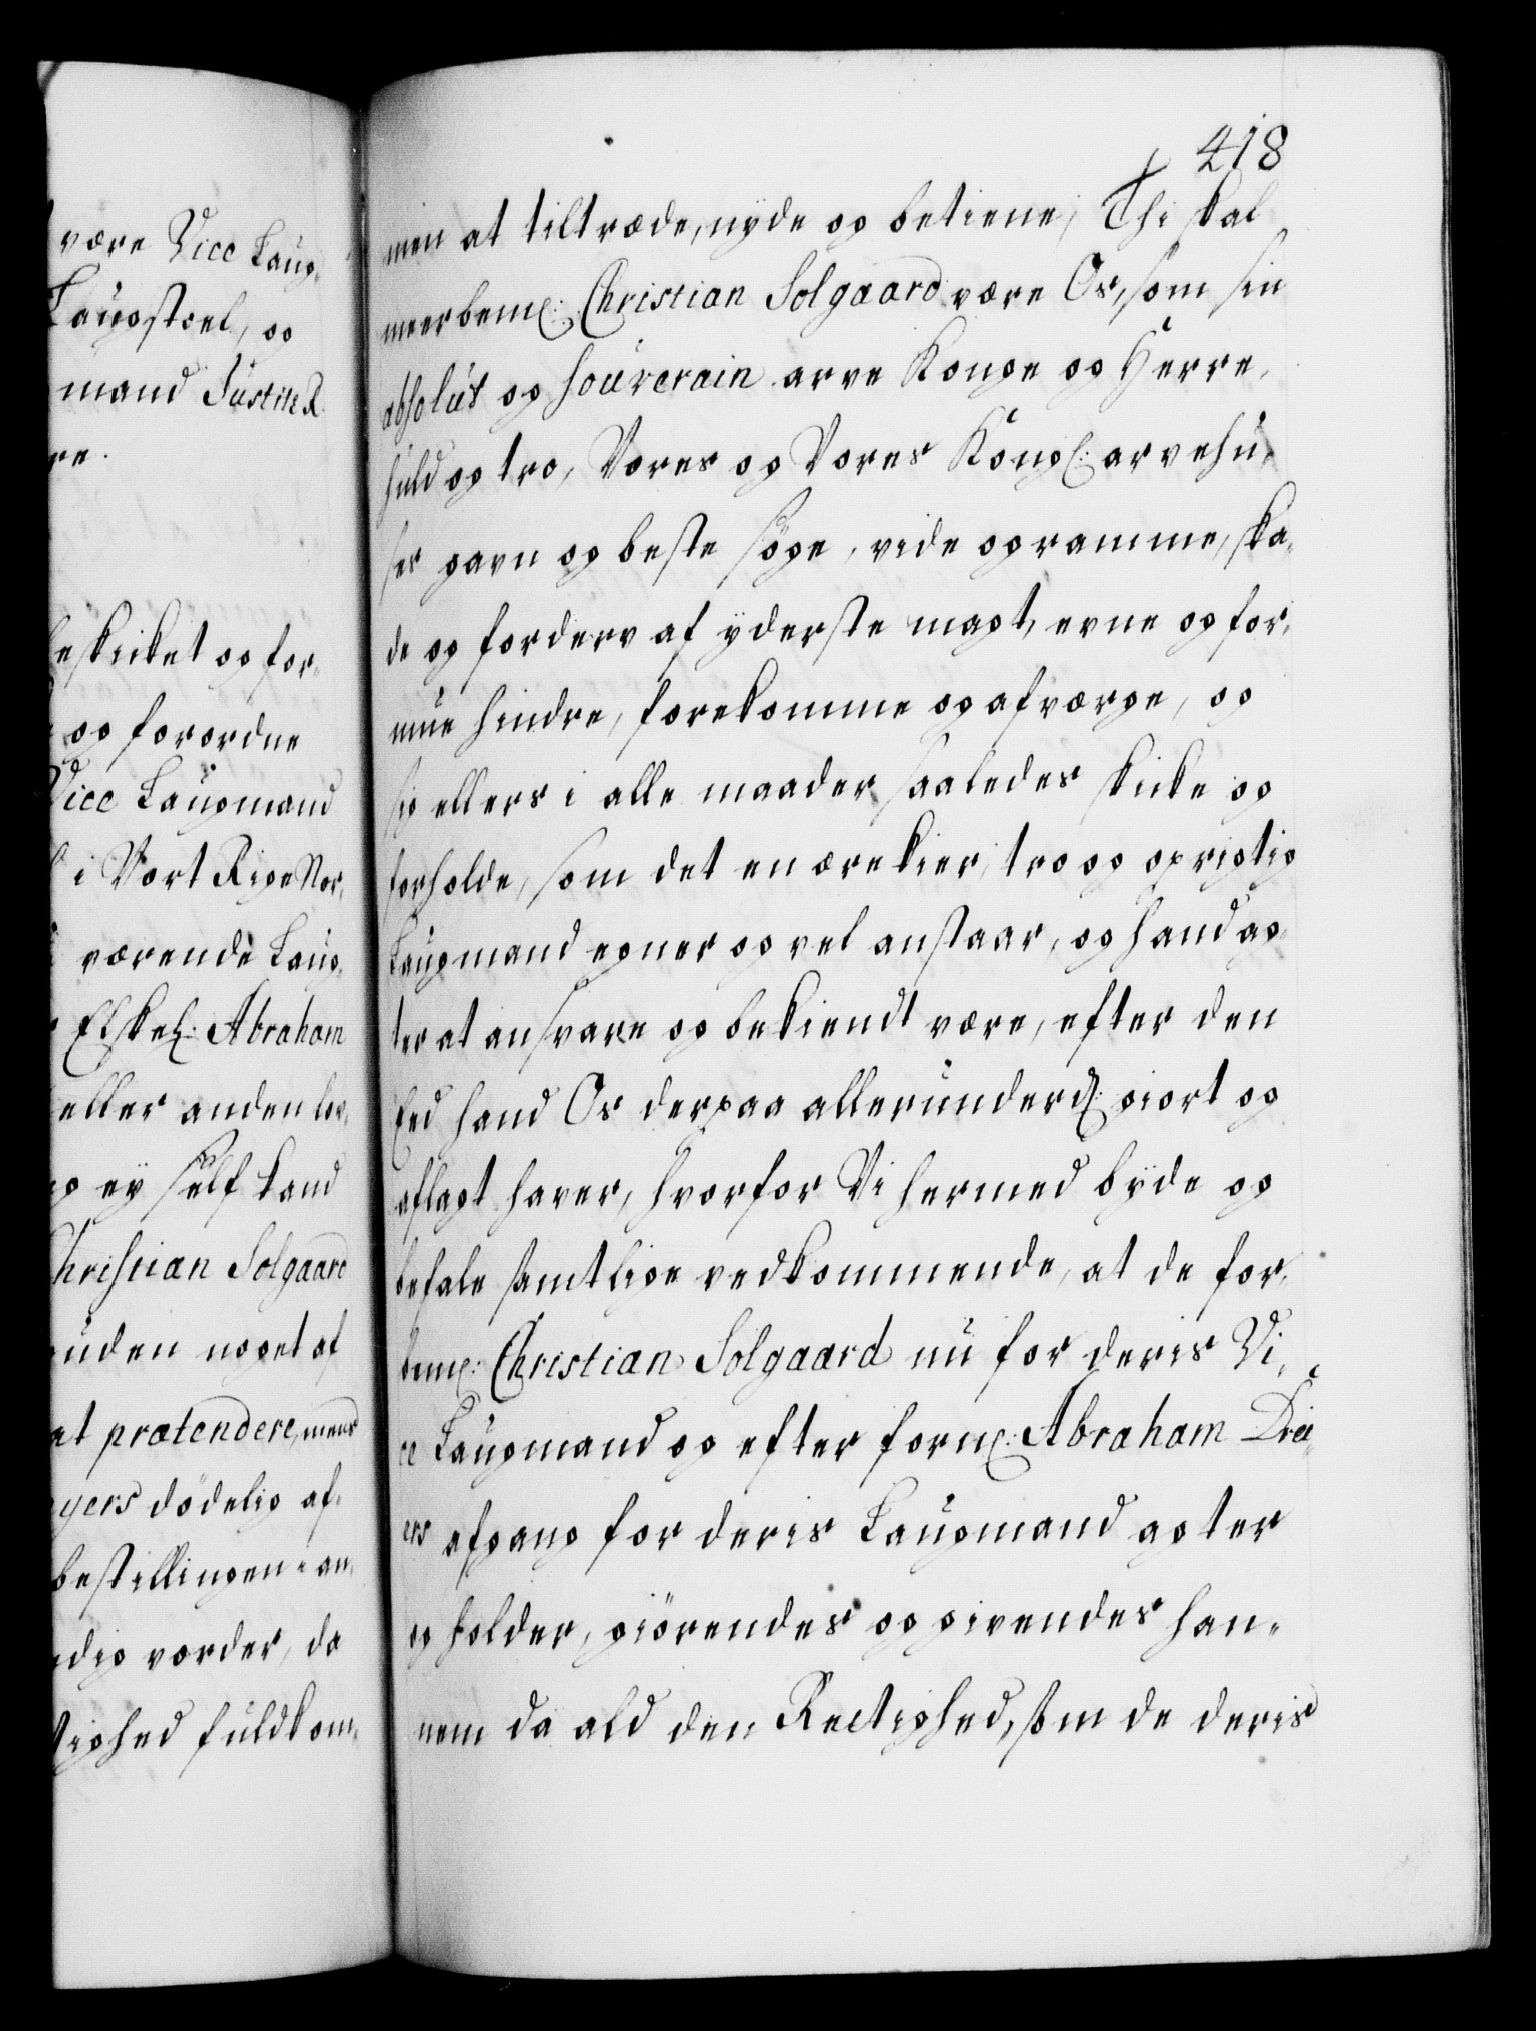 være Vice Laug,
Laugstoel, og
mand Justite R
re.
eskicket og for,
og forordne
Vice Laugmand
i Vort Rige Nor,
værende Laug,
Elskel: Abraham
eller anden lov,
og ey self kand
hristian Solgaard
uden noget af
at prætendere, mens
yers dödelig af,
bestillingen i an,
dig vorder, da
tighed fuldkom,
418
men at tiltræde, nyde og betiene; Thi skal
meerbem: Christian Solgaard være Os, som sin
absolut og souverain arve Konge og Herre,
huld og tro, Vores og Vores Kongl: arvehu,
ses gavn og beste söge, vide og ramme, ska,
de og forderv af yderste magt, evne og for,
mue hindre, forekomme og afværge, og
sig ellers i alle maader saaledes skicke og
forholde, som det en ærekier, tro og oprigtig
Laugmand egner og vel anstaar, og hand ag,
ter at ansvare og bekiendt være, efter den
Eed hand Os derpaa allerunderd: giort og
aflagt haver, hvorfor Vi hermed byde og
befale samtlige vedkommende, at de for,
bem: Christian Solgaard nu for deris Vi,
ce Laugmand og efter form: Abraham Drei,
ers afgang for deris Laugmand agter
og holder, giörendes og givendes han,
nem da ald den Rectighed, som de deris